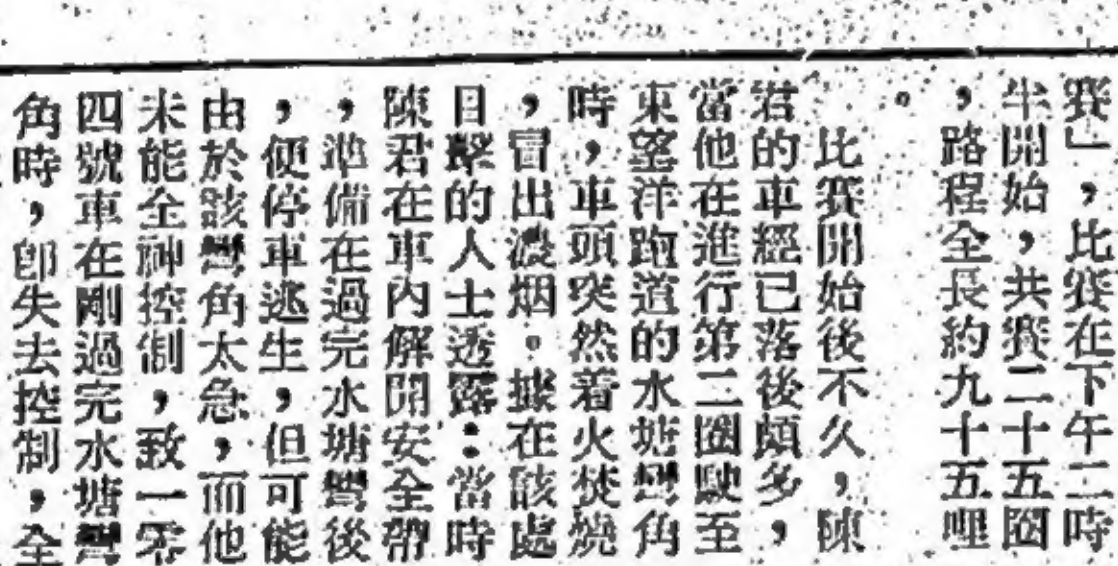 賽」，比賽在下午二時
半開始，共賽二十五圈
，路程全長約九十五哩
。
比賽開始後不久，陳
君的車經已落後頗多，
當他在進行第二圈駛至
東望洋跑道的水塘彎角
時，車頭突然着火焚燒
，冒出濃烟。據在該處
目擊的人士透露：當時
陳君在車內解開安全帶
，準備在過完水塘彎後
，便停車逃生，但可能
由於該彎角太急，而他
未能全神控制，致一零
四號車在剛過完水塘彎
角時，卽失去控制，全